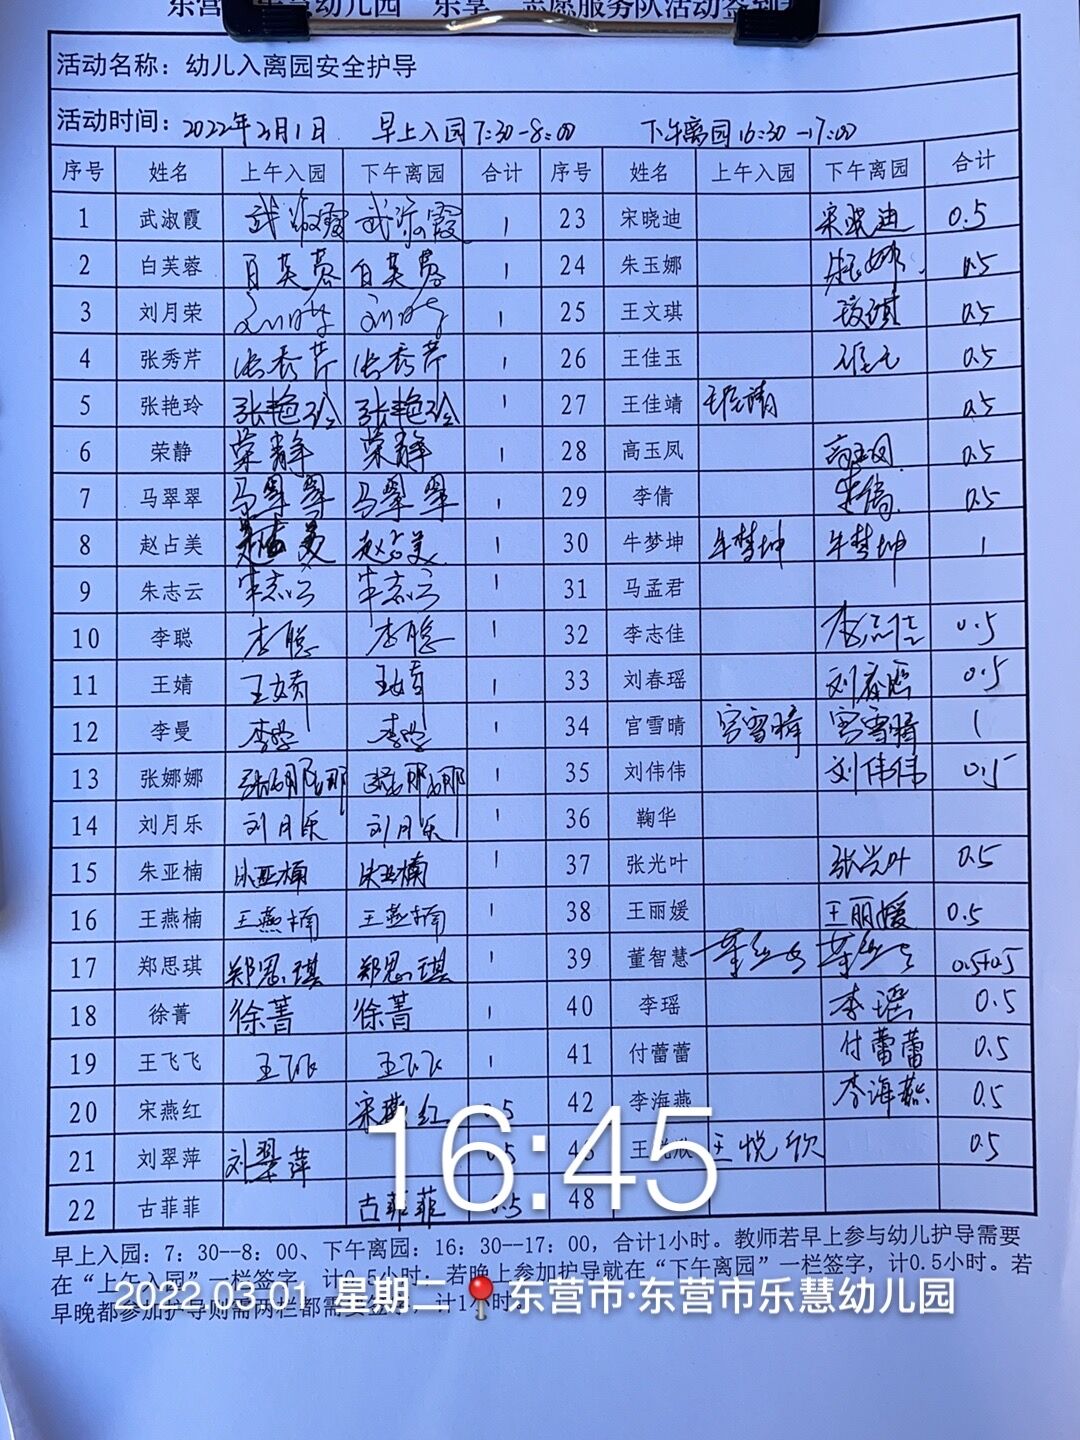 东营 乐慧幼儿园“乐享”志愿服务队活动签到
活动名称：幼儿入离园安全护导
活动时间：2022年3月1日 早上入园7:30-8:00 下午离园16:30-17:00
序号 姓名 上午入园 下午离园 合计 序号 姓名 上午入园 下午离园 合计
1 武淑霞 武淑霞 武淑霞 1 23 宋晓迪 宋晓迪 0.5
2 白芙蓉 白芙蓉 白芙蓉 1 24 朱玉娜 朱玉娜 0.5
3 刘月荣 刘月荣 刘月荣 1 25 王文琪 0.5
4 张秀芹 张秀芹 张秀芹 1 26 王佳玉 0.5
5 张艳玲 张艳玲 张艳玲 1 27 王佳靖 王佳靖 0.5
6 荣静 荣静 荣静 1 28 高玉凤 高玉凤 0.5
7 马翠翠 马翠翠 马翠翠 1 29 李倩 李倩 0.5
8 赵占美 赵占美 赵占美 1 30 牛梦坤 牛梦坤 牛梦坤 1
9 朱志云 朱志云 朱志云 1 31 马孟君
10 李聪 李聪 李聪 1 32 李志佳 李志佳 0.5
11 王婧 王婧 王婧 1 33 刘春瑶 刘春瑶 0.5
12 李曼 李曼 李曼 1 34 官雪晴 官雪晴 官雪晴 1
13 张娜娜 张娜娜 张娜娜 1 35 刘伟伟 刘伟伟 0.5
14 刘月乐 刘月乐 刘月乐 1 36 鞠华
15 朱亚楠 朱亚楠 朱亚楠 1 37 张光叶 张光叶 0.5
16 王燕楠 王燕楠 王燕楠 1 38 王丽媛 王丽媛 0.5
17 郑思琪 郑思琪 郑思琪 1 39 董智慧 0.5+0.5
18 徐菁 徐菁 徐菁 1 40 李瑶 李瑶 0.5
19 王飞飞 王飞飞 王飞飞 1 41 付蕾蕾 付蕾蕾 0.5
20 宋燕红 宋燕红 0.5 42 李海燕 李海燕 0.5
21 刘翠萍 刘翠萍 0.5 王悦欣 王悦欣 0.5
22 古菲菲 古菲菲 0.5 48
16:45
早上入园：7：30--8：00、下午离园：16：30--17：00，合计1小时。教师若早上参与幼儿护导需要
在“上午入园”一栏签字，计0.5小时；若晚上参加护导就在“下午离园”一栏签字，计0.5小时。若
早晚都参加护导则需两栏都需要签字，计1小时。
2022.03.01 星期二 东营市·东营市乐慧幼儿园